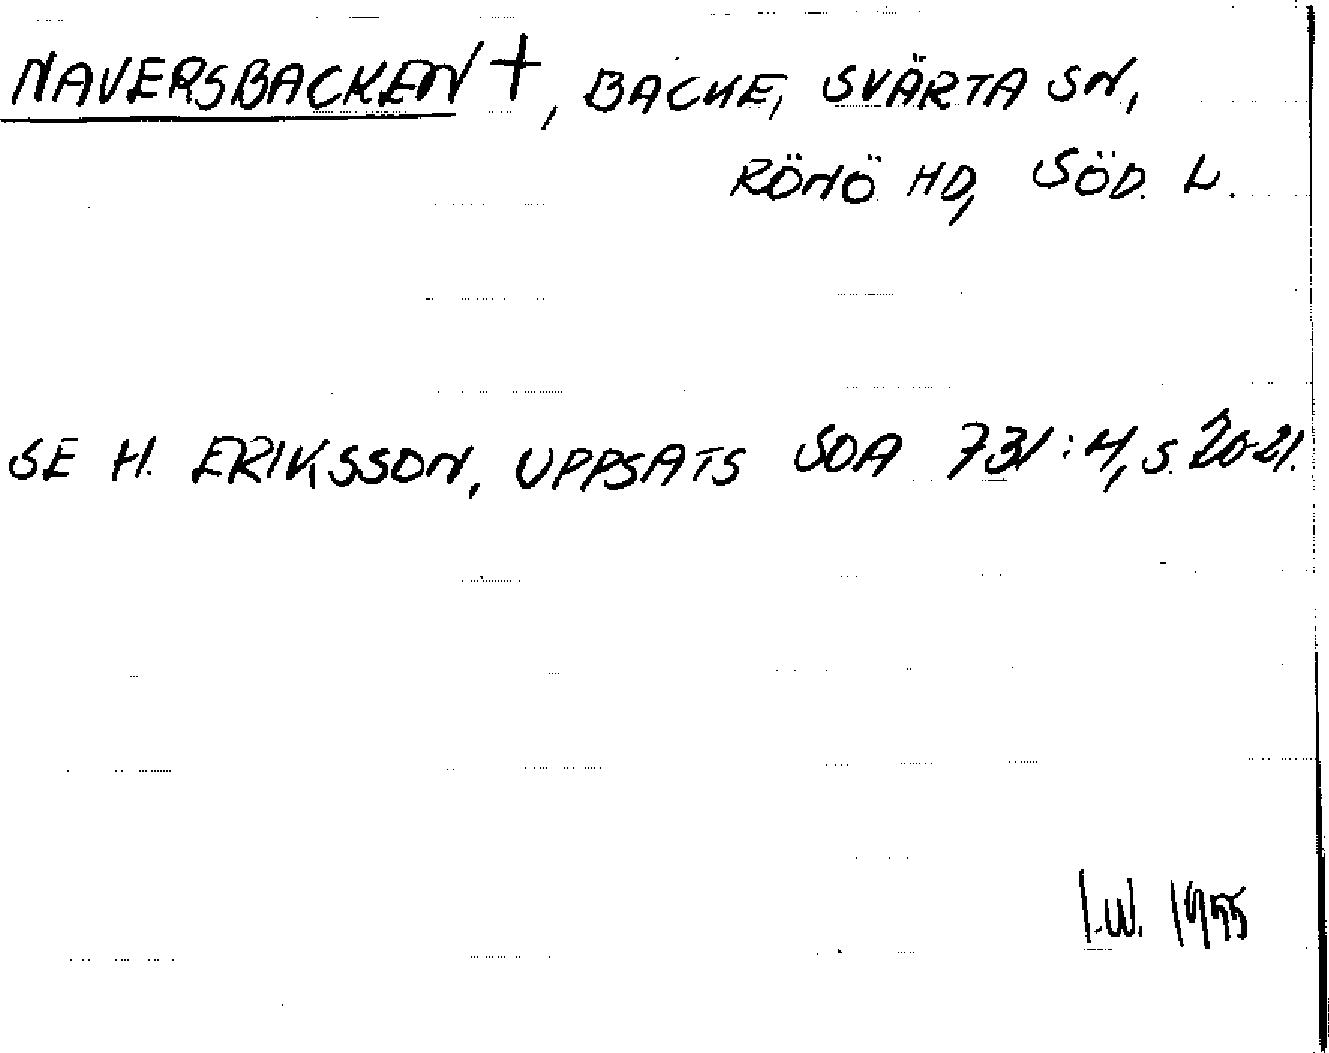 NAVERSBACKEN +, BACKE, SVÄRTA SN,
RÖNÖ HD, SÖD. L.
SE H. ERIKSSON, UPPSATS SOA 731:4, S. 20-21.
I.W. 1955